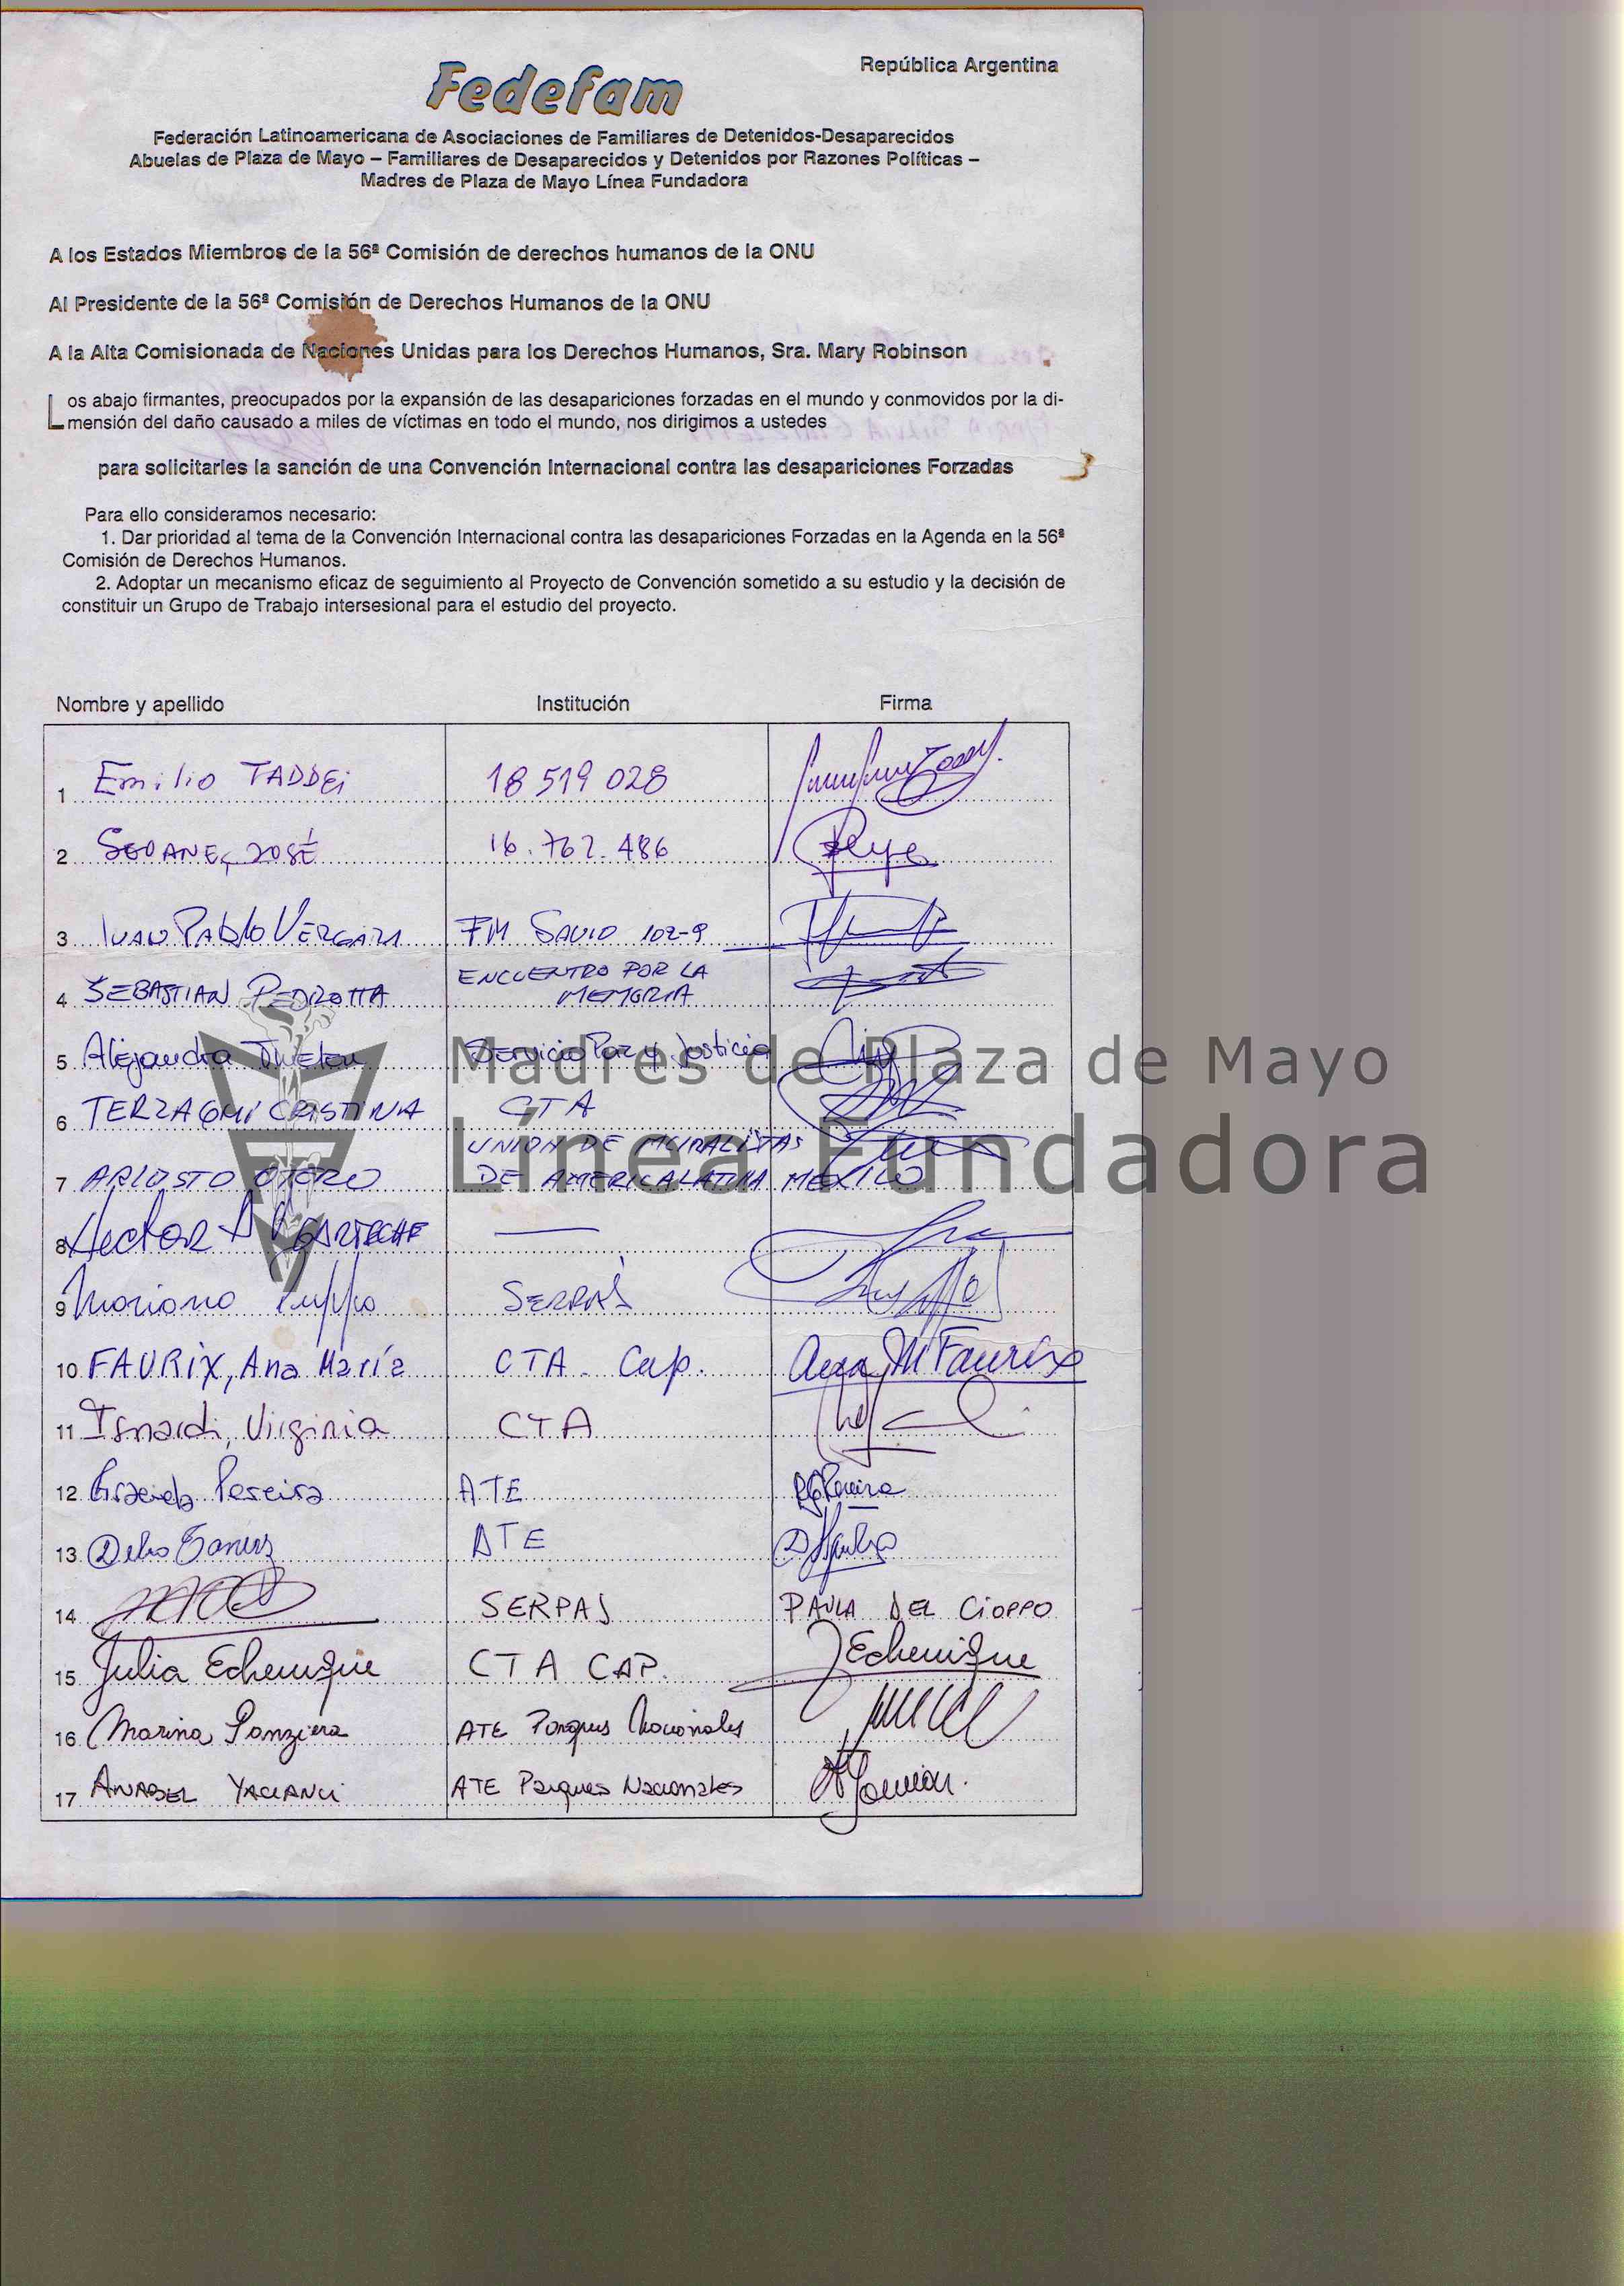 República Argentina
Fedefam
Federación Latinoamericana de Asociaciones de Familiares de Detenidos-Desaparecidos
Abuelas de Plaza de Mayo – Familiares de Desaparecidos y Detenidos por Razones Políticas –
Madres de Plaza de Mayo Línea Fundadora
A los Estados Miembros de la 56ª Comisión de derechos humanos de la ONU
Al Presidente de la 56ª Comisión de Derechos Humanos de la ONU
A la Alta Comisionada de Naciones Unidas para los Derechos Humanos, Sra. Mary Robinson
Los abajo firmantes, preocupados por la expansión de las desapariciones forzadas en el mundo y conmovidos por la di-
mensión del daño causado a miles de víctimas en todo el mundo, nos dirigimos a ustedes
para solicitarles la sanción de una Convención Internacional contra las desapariciones Forzadas
Para ello consideramos necesario:
1. Dar prioridad al tema de la Convención Internacional contra las desapariciones Forzadas en la Agenda en la 56ª
Comisión de Derechos Humanos.
2. Adoptar un mecanismo eficaz de seguimiento al Proyecto de Convención sometido a su estudio y la decisión de
constituir un Grupo de Trabajo intersesional para el estudio del proyecto.
Nombre y apellido Institución Firma
1 Emilio TADDEi 18 519 028
2 SEOANE, JOSÉ 16.762.486
3 JUAN PABLO VERGARA FM 102-9
4 SEBASTIAN PEDROTTA ENCUENTRO POR LA
MEMORIA
5 Alejandra Servicio Paz y Justicia
Madres de Plaza de Mayo
6 TERZAGHI CRISTINA CTA
Línea Fundadora
7 ARIOSTO OTERO UNION DE MURALISTAS
DE AMERICA LATINA MEXICO
8 Hector
9 Mariano SERPAJ
10 FAURIX, Ana María CTA Cap. Ana M Faurix
11 Isnardi, Virginia CTA
12 Graciela Pereira ATE Pereira
13 Delio ATE
14 SERPAJ PAULA DEL CiOPPO
15 Julia Echenique CTA CAP. JEchenique
16 Marina Panziera ATE Parques Nacionales
17 ANABEL ATE Parques Nacionales